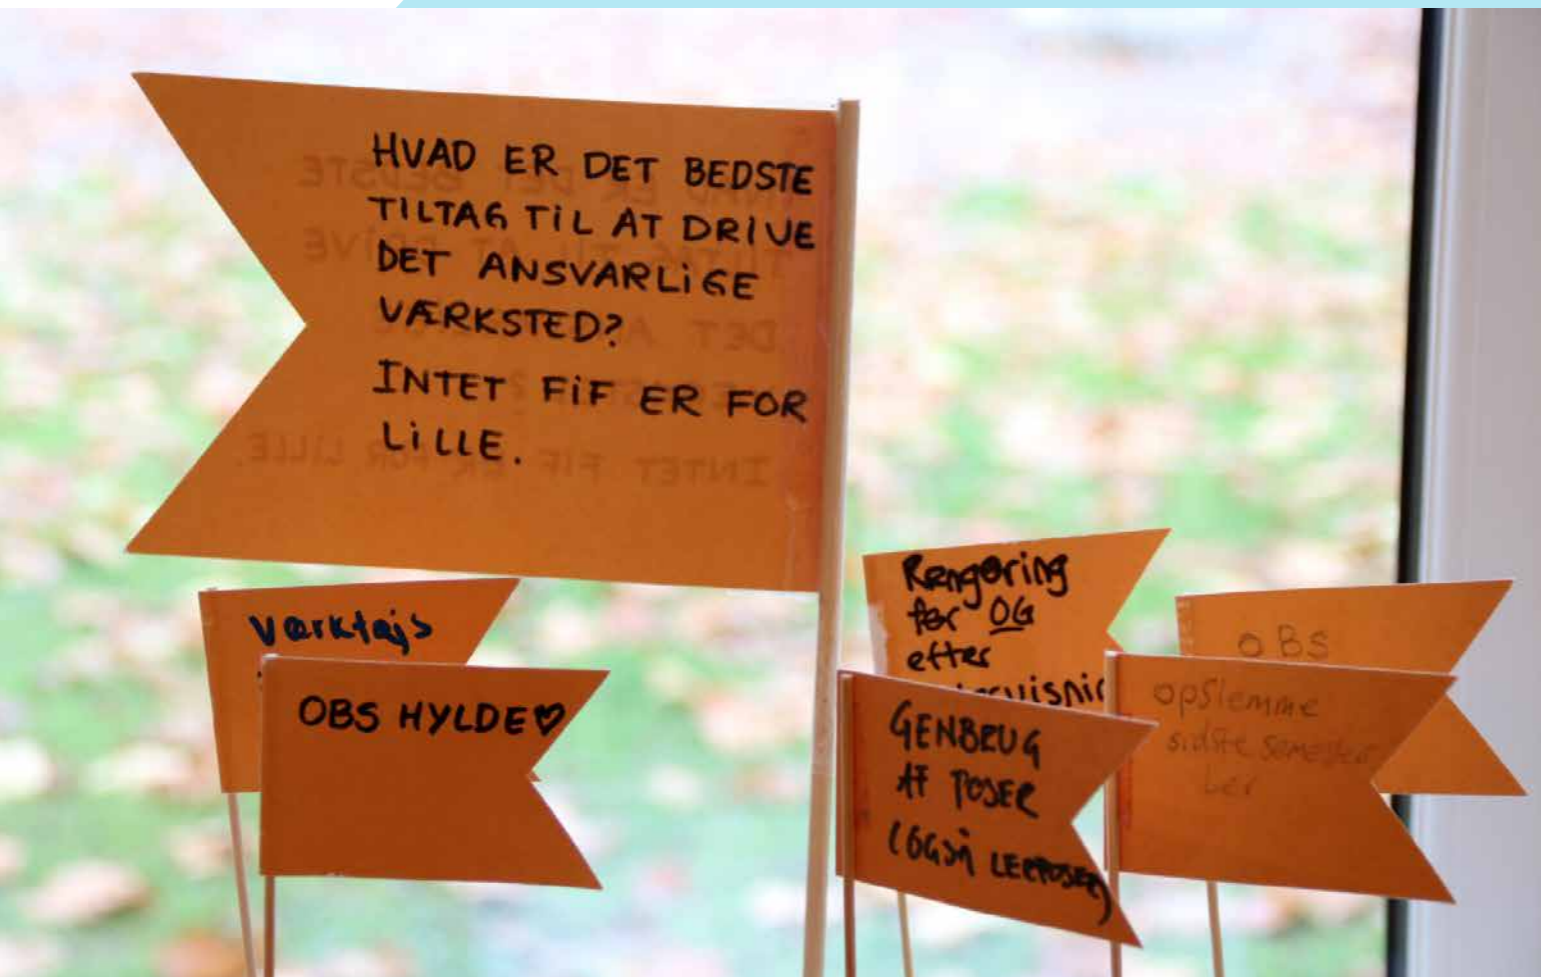 HVAD ER DET BEDSTE
TILTAG TIL AT DRIVE
DET ANSVARLIGE
VÆRKSTED?
INTET FIF ER FOR
LILLE.
Værktøjs
OBS HYLDE♡
Rengøring
før OG
efter
GENBRUG
AF POSER
(OGSÅ LERPOSER)
OBS
opslemme
sidste semester
ler